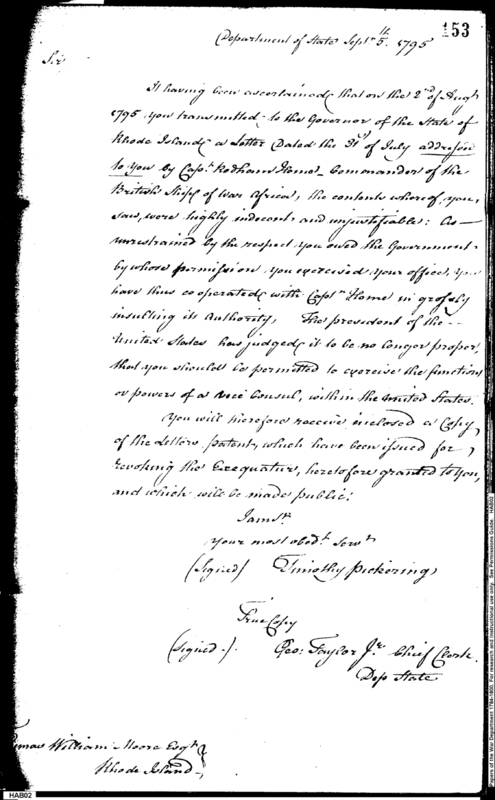 153
Department of State Septr. 5th. 1795
Sir
It having been ascertained that on the 2nd of Augt
1795 you transmitted to the Governor of the State of
Rhode Island a Letter Dated the 31st of July addressed
to you by Capt. Rodham Home Commander of the
British Ship of War Africa, the contents whereof, you
saw, were highly indecent and unjustifiable: As
unrestrained by the respect you owed the Government
by whose permission you exercised your office, you
have thus co operated with Captn Home in grossly
insulting its Authority, The president of the
United States has judged it to be no longer proper,
that you should be permitted to exercise the functions
or powers of a vice Consul, within the United States.
You will therefore receive inclosed a Copy
of the Letters patent, which have been issued for
revoking the Exequatur, heretofore granted to you,
and which will be made public.
I am Sr.
your most obedt. Servt
(Signed) Timothy Pickering
True Copy
(Signed). Geo: Taylor Jr. Chief Clerk
Dep State
William Moore Esqr
Rhode Island
HAB02
Papers of the War Department 1784-1800. For research and instructional use only. See Permissions Guide. HAB02